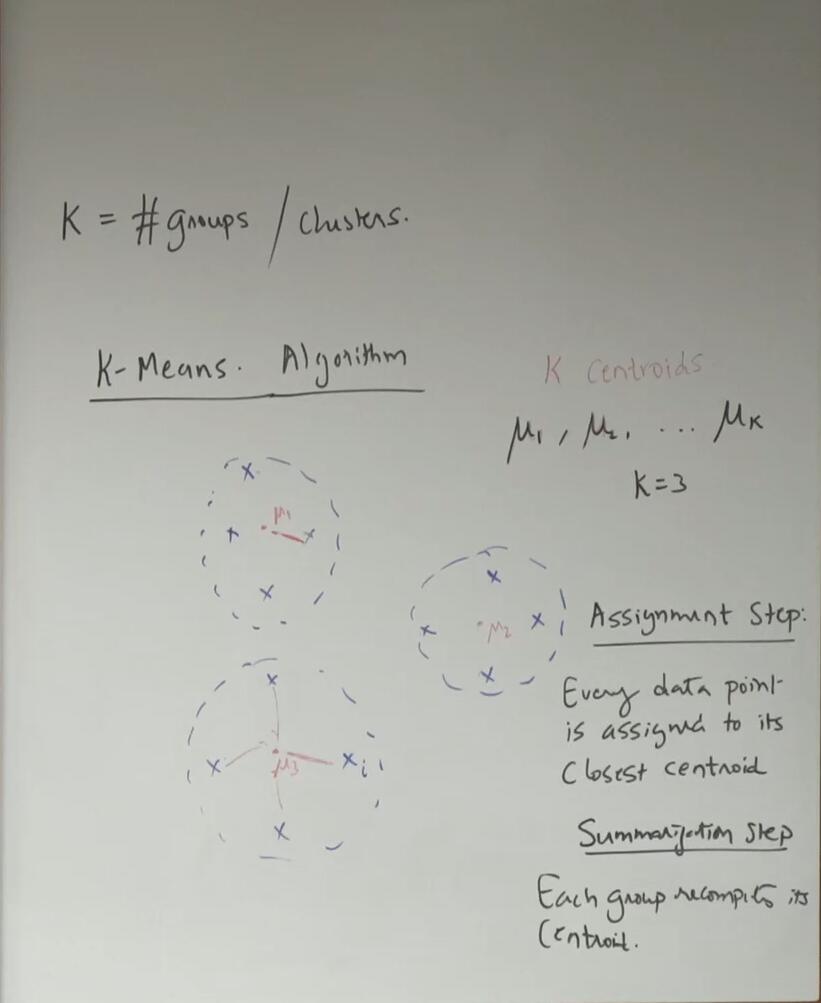 K = #groups / clusters.
K-Means. Algorithm
K Centroids
μ₁, μ₂, ... μK
K=3
μ₁
μ₂
μ₃
xᵢ
Assignment Step:
Every data point
is assigned to its
Closest centroid
Summarization Step
Each group recomputes its
Centroid.